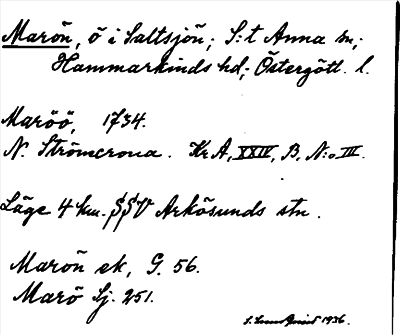 Marön, ö i Saltsjön; S:t Anna sn;
Hammarkinds hd; Östergötl. l.
Maröö, 1734.
N. Strömcrona. Kr.A, XXIV, B, N:o III.
Läge 4 km. SSV Arkösunds stn.
Marön ek, G. 56.
Marö Sj. 251.
1936.